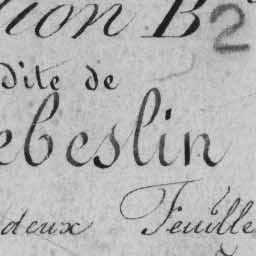 tion B2
dite de
ebeslin
deux Feuille